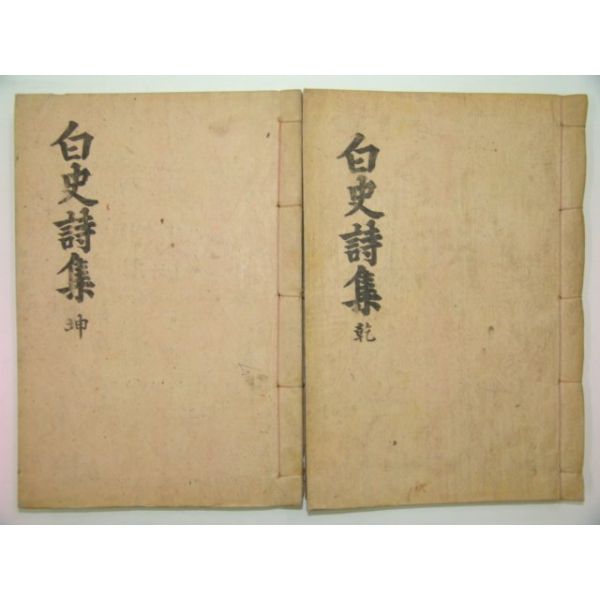 白史詩集
乾
白史詩集
坤